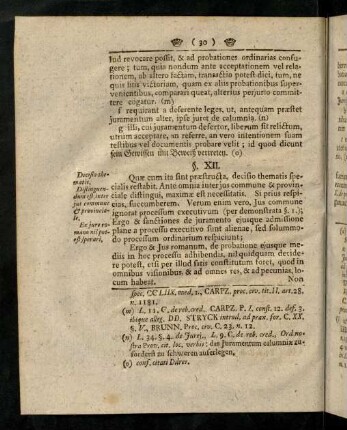 ( 30 )
lud revocare possit, & ad probationes ordinarias confu-
gere; tum, quia nondum ante acceptationem vel rela-
tionem, ab altero factam, transactio potest dici, tum, ne
quis litis victoriam, quam ex aliis probationibus super-
venientibus, comparari querat, alterius perjurio commit-
tere cogatur. (m)
f requirant a deferente leges, ut, antequam præstet
juramentum alter, ipse juret de calumnia. (n)
g illi, cui juramentum defertur, liberum sit relictum,
utrum acceptare, an referre, an vero intentionem suam
testibus vel documentis probare velit; id quod dicunt
sein Gewissen mit Beweiß vertreten. (o)
§. XII.
Decisio the-
matis.
Distinguen-
dum est inter
jus commune
& provincia-
le.
Ex jure ro-
mano nil pot-
est sperari,
Quæ cum ita sint præstructa, decisio thematis spe-
cialis restabit. Ante omnia inter jus commune & provin-
ciale distingui, maxime est necessitatis. Si prius respi-
cias, succumberem. Verum enim vero, Jus commune
ignorat processum executivum (per demonstrata §. 1.);
Ergo & sanctiones de juramento ejusque admissione
plane a processu executivo sunt alienæ, sed solummo-
do processum ordinarium respiciunt;
Ergo & Jus romanum, de probatione ejusque me-
diis in hoc processu adhibendis, nil quidquam decide-
re potest, etsi per illud satis constitutum foret, quod in
omnibus visionibus & ad omnes res, & ad pecunias, lo-
cum habeat.
Non
spec. CCLIIX. med. 5., CARPZ. proc. tit. II. art. 28.
n. 1181.
(m) L. 11. C. de reb. cred. CARPZ. P. I. const. 12. def. 3.
ibique alleg. DD. STRYCK introd. ad prax. for. C. XX.
§. V., BRUNN. Proc. civ. C. 23. n. 12.
(n) L. 34. §. 4. de Jurej., L. 9. C. de reb. cred., Ord. no-
stra Prov. cit. loc. verbis: das Juramentum calumniæ zu-
foderst zu schwören auferlegen,
(o) conf. citati Ddres.